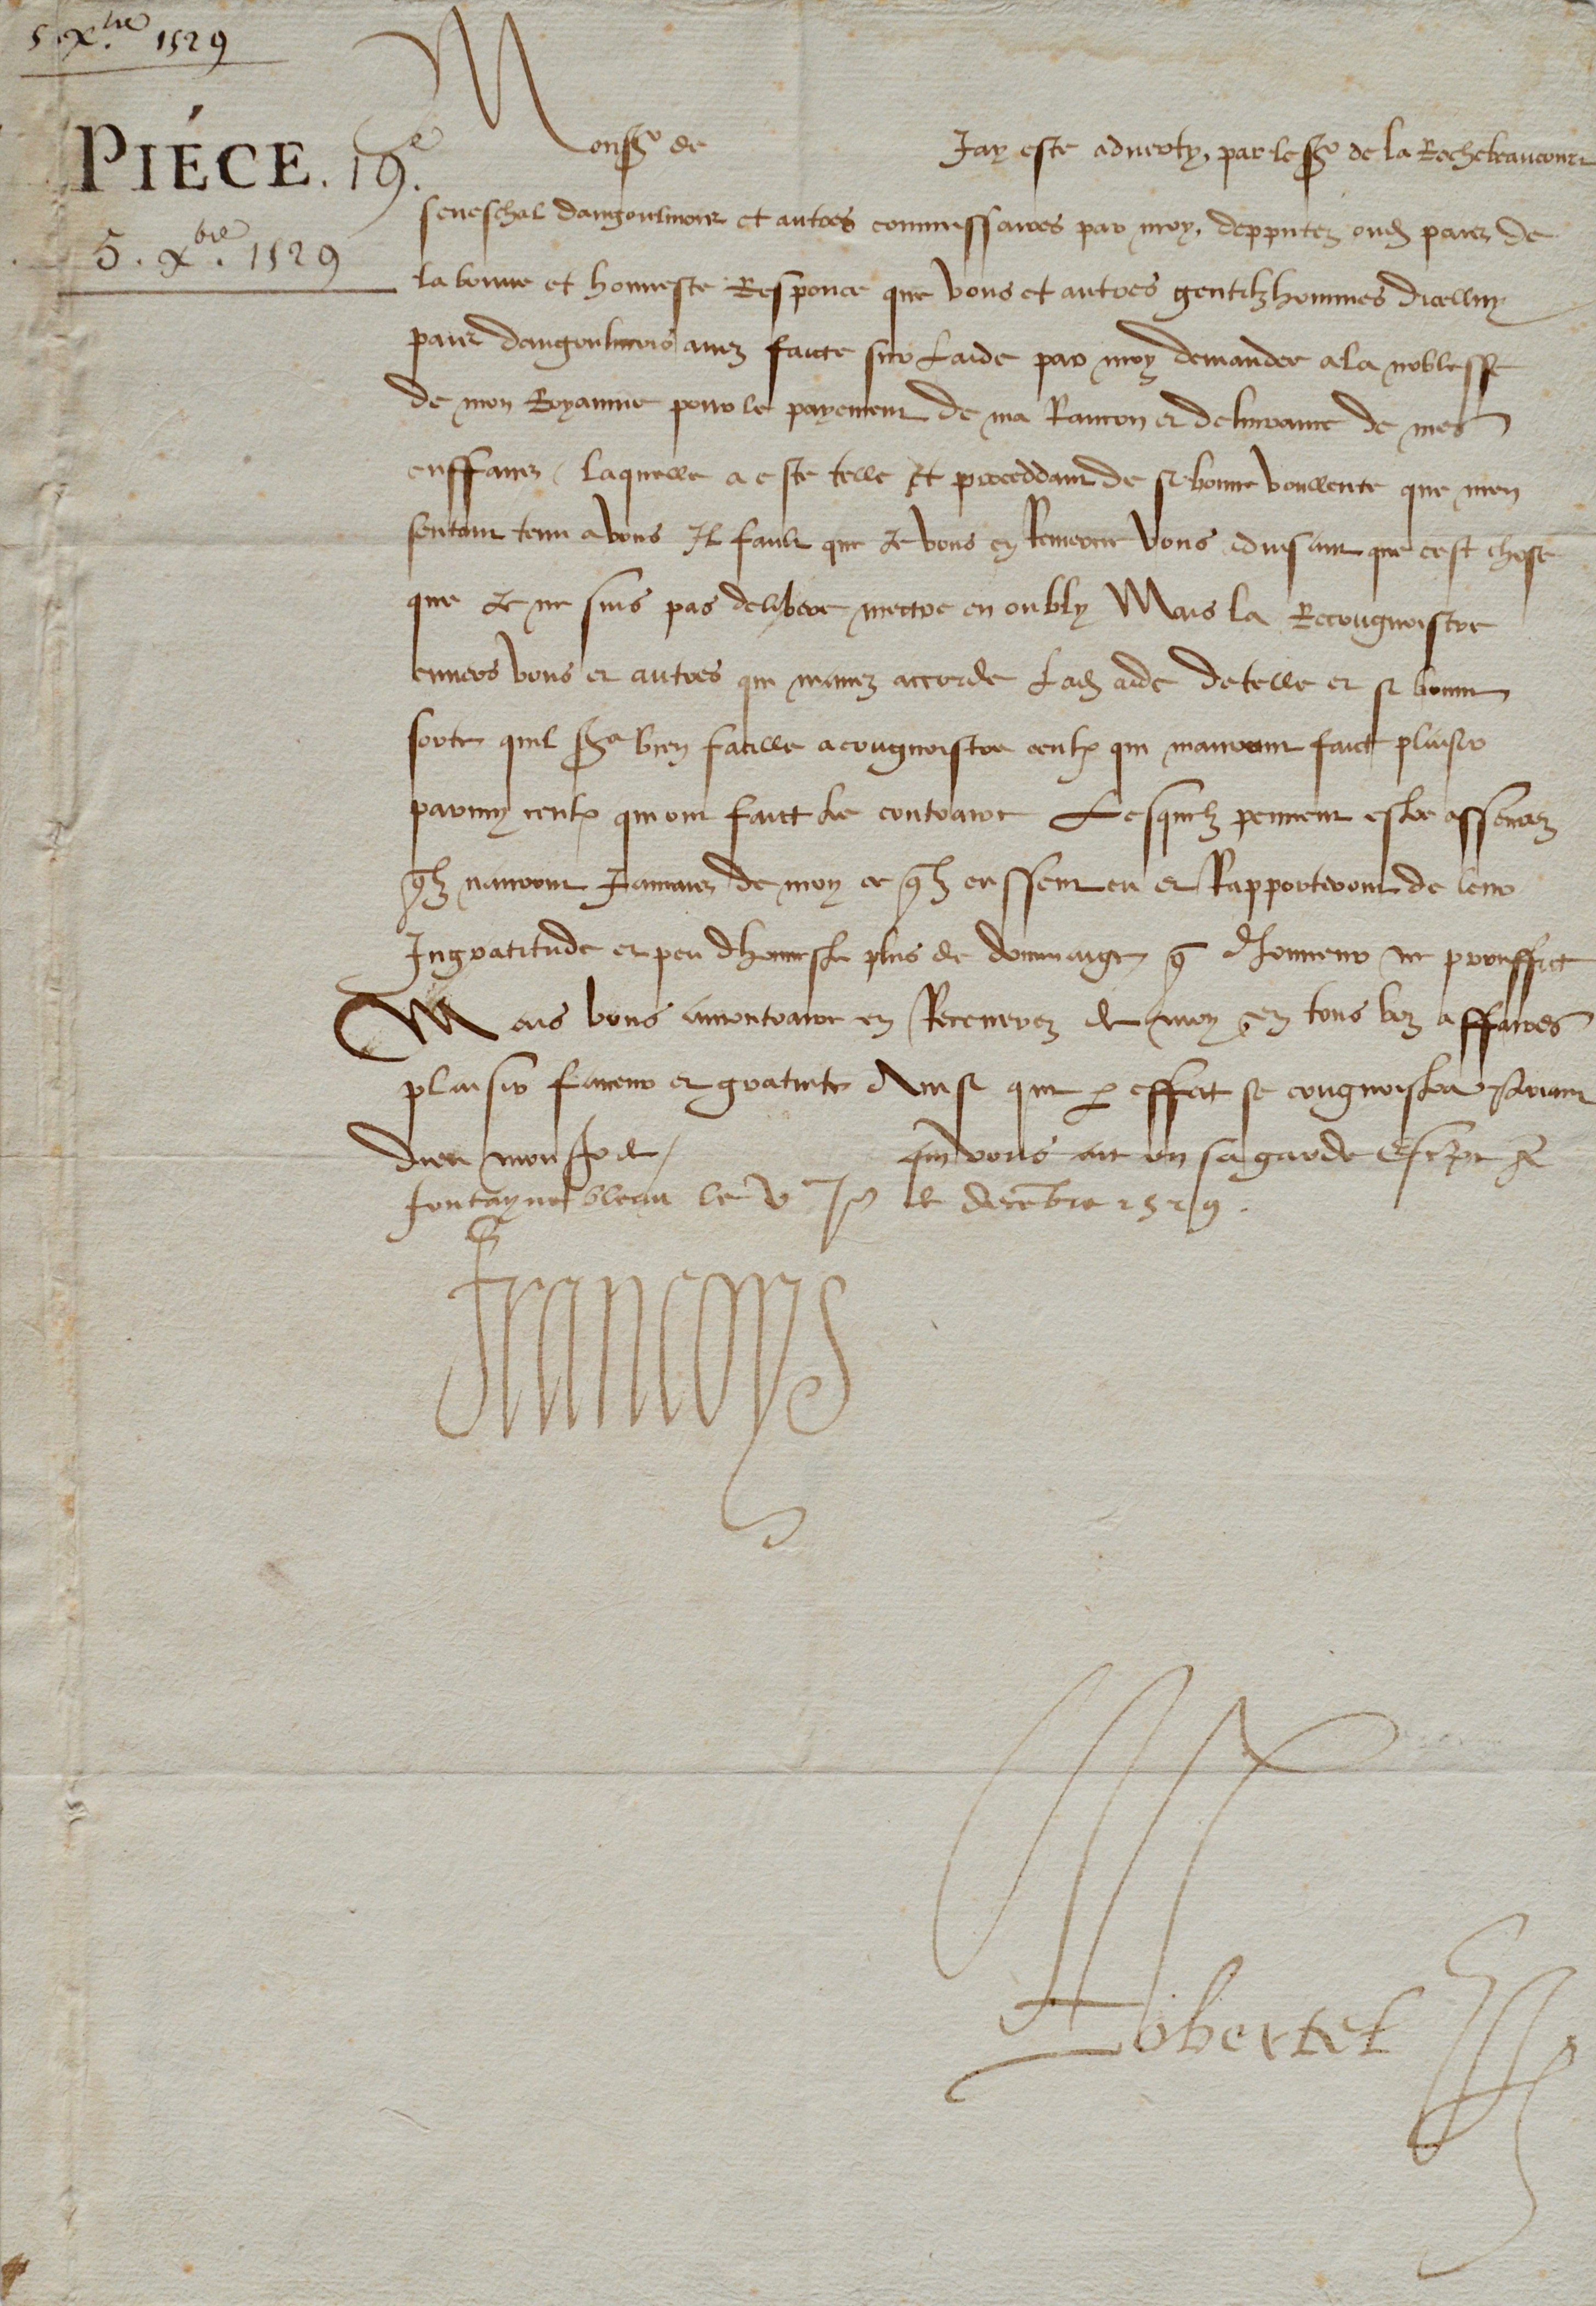 5 Xbre 1529
PIÉCE. 19e.
5. Xbre. 1529
Monsr de Jay este adverty, par le sr de la Rochebeaucourt
seneschal dangoulmois et autres commissaires par moy, depputez oud pais de
la bonne et honneste Responce que vous et autres gentilzhommes dicelluy
pais dangoulmois avez faicte sur Laide par moy demandee a la noblesse
de mon Royaume pour le payement de ma Rancon et delivrance de mes
enffans, laquelle a este telle Et proceddant de si bonne voullente que men
sentant tenu a vous Il fault que Je vous en Remercie vous advisant que cest chose
que Je ne suis pas delibere mectre en oubly Mais la Recougnoistre
envers vous et autres qui mavez accorde Lad aide de telle et si bonne
sorte quil sera bien facille a cougnoistre ceulx qui mauront faict plaisir
parmy ceulx qui ont faict le contraire Lesquelz peuvent estre asseurez
qlz nauront Jamais de moy ce qlz eussent eu et Rapporteront de leur
Ingratitude et peu dhonneste plus de dommaige q dhonneur ne prouffict
Mais vous aucontraire en Recevrez de moy en tous voz affaires
plaisir faveur et gratuite Ainsi que p effect se cougnoistra Priant
dieu monsr de quil vous ait en sa garde Escript a
fontaynebleau le ve Jor de decembre 1529.
Francoys
Robertet